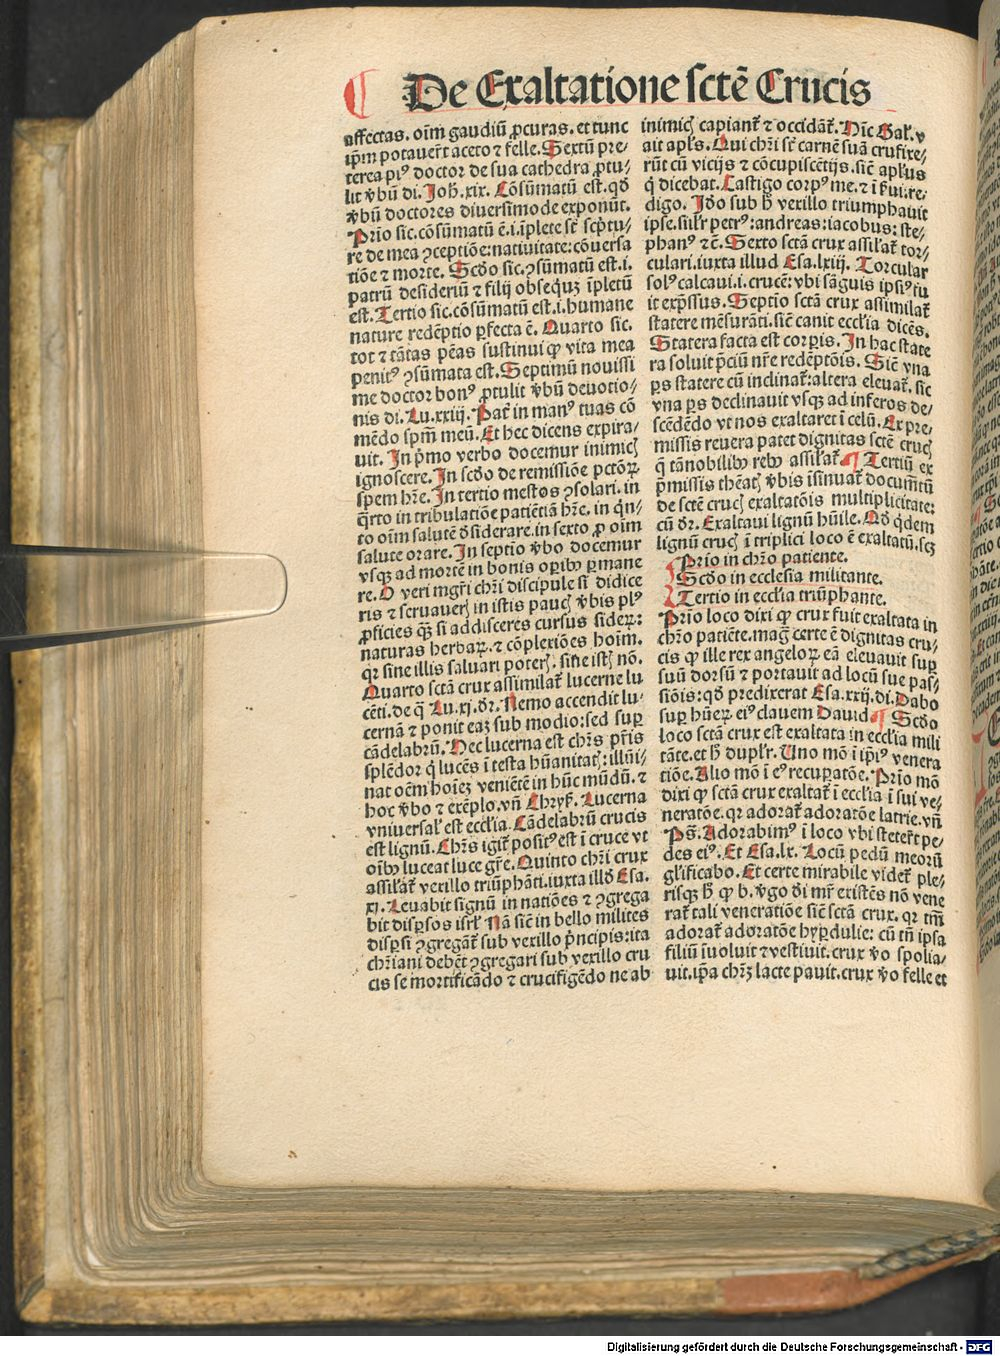 De Exaltatione sctē Crucis
affectas. oīm gaudiū ꝓcuras. et tunc
ip̄m potauer̄t aceto ⁊ felle. Sextū pre-
terea piꝰ doctor de sua cathedra ꝓtu-
lit v̄bū di. Joh̄. xix. Cōsūmatū est. qd̄
v̄bū doctores diuersimode exponūt.
Prīo sic. cōsūmatū ē. i. īplete st̄ scp̄tu-
re de mea ꝯceptiōe: natiuitate: cōuersa
tiōe ⁊ morte. Scd̄o sic. ꝯsūmatū est. i.
patrū desideriū ⁊ filij obsequꝫ īpletū
est. Tertio sic. cōsūmatū est. i. humane
nature redēptio ꝑfecta ē. Quarto sic.
tot ⁊ tātas pēas sustinui ꝙ vita mea
penitꝰ ꝯsūmata est. Septimū nouissi
me doctor bonꝰ ꝓtulit v̄bū deuotio-
nis di. Lu. xxiij. Pat̄ in manꝰ tuas cō
mēdo sp̄m meū. Et hec dicens expira-
uit. In p̄mo verbo docemur inimicꝭ
ignoscere. In scd̄o de remissiōe pctōꝝ
spem hr̄e. In tertio mestos ꝯsolari. in
q̄rto in tribulatiōe patiētiā hr̄e. in q̄n-
to oīm salutē d̄siderare. in sexto ꝓ oīm
salute orare. In septīo v̄bo docemur
vsqꝫ ad mortē in bonis oꝑibꝰ ꝑmane
re. O veri mgr̄i chr̄i discipule si didice
ris ⁊ seruauerꝭ in istis paucꝭ v̄bis plꝰ
ꝓficies qꝫ si addisceres cursus sideꝝ:
naturas herbaꝝ. ⁊ cōplexiōes hoīm.
qr sine illis saluari poterꝭ. sine istꝭ nō.
Quarto sctā crux assimilat̄ lucerne lu
cēti. de q̄ Lu. xj. dr̄. Nemo accendit lu-
cernā ⁊ ponit eaꝫ sub modio: sed suꝑ
cādelabrū. Hec lucerna est chr̄s pr̄is
splēdor q̇ lucēs ī testa hūanitatꝭ: illūi-
nat oēm hoīeꝫ veniētē in hūc mūdū. ⁊
hoc v̄bo ⁊ exēplo. vn̄ Chrys̄. Lucerna
vniuersal̄ est eccl̄ia. Cādelabrū crucis
est lignū. Chr̄s igit̄ positꝰ est ī cruce vt
oībꝰ luceat luce gr̄e. Quinto chr̄i crux
assil̄at̄ vexillo triūphāti. iuxta illd̄ Esa.
xj. Leuabit signū in natiōes ⁊ ꝯgrega
bit disꝑsos isrl̄. Nā sic̄ in bello milites
disꝑsi ꝯgregāt̄ sub vexillo p̄ncipis: ita
chr̄iani debēt ꝯgregari sub vexillo cru
cis se mortificādo ⁊ crucifigēdo ne ab
inimicꝭ capiant̄ ⁊ occidāt̄. Hīc Gal̄. v
ait apl̄s. Qui chr̄i st̄ carnē suā crufixe-
rūt cū vicijs ⁊ cōcupiscētijs. sic̄ apl̄us
q̇ dicebat. Castigo corpꝰ me. ⁊ ī ẜui. re-
digo. Id̄o sub h̄ vexillo triumphauit
ipse. sil̄r petrꝰ: andreas: iacobus: ste-
phanꝰ ⁊c̄. Sexto sctā crux assil̄at̄ tor-
culari. iuxta illud Esa. lxiij. Torcular
solꝰ calcaui. i. crucē: vbi sāguis ipsiꝰ fu
it exp̄ssus. Septīo sctā crux assimilat̄
statere mēsurāti. sic̄ canit eccl̄ia dicēs.
Statera facta est corꝑis. In hac state
ra soluit p̄ciū nr̄e redēptōis. Sic̄ vna
ꝑs statere cū inclinat̄: altera eleuat̄. sic
vna ꝑs declinauit vsqꝫ ad inferos de-
scēdēdo vt nos exaltaret ī celū. Ex pre-
missis reuera patet dignitas sctē crucꝭ
q̄ tā nobilibꝰ rebꝰ assil̄at̄. ¶ Tertiū ex
p̄missis theātꝭ v̄bis īsinuat̄ documētū
de sctē crucꝭ exaltatōis multiplicitate:
cū dr̄. Exaltaui lignū hūile. Qd̄ q̇dem
lignū crucꝭ ī triplici loco ē exaltatū. scꝫ
Prīo in chr̄o patiente.
Scd̄o in ecclesia militante.
Tertio in eccl̄ia triūphante.
Prīo loco dixi ꝙ crux fuit exaltata in
chr̄o patiēte. maḡ certe ē dignitas cru-
cis ꝙ ille rex angeloꝝ eā eleuauit suꝑ
suū dorsū ⁊ portauit ad locū sue pas-
siōis: qd̄ predixerat Esa. xxij. di. Dabo
suꝑ hūeꝝ eiꝰ clauem Dauid ¶ Scd̄o
loco sctā crux est exaltata in eccl̄ia mili
tāte. et h̄ dupl̄r. Uno mō ī ip̄iꝰ venera
tiōe. Alio mō ī eꝰ recuꝑatōe. Prīo mō
dixi ꝙ sctā crux exaltat̄ ī eccl̄ia ī sui ve-
neratōe. qr adorat̄ adoratōe latrie. vn̄
Ps̄. Adorabimꝰ ī loco vbi steter̄t pe-
des eiꝰ. Et Esa. lx. Locū pedū meorū
gl̄ificabo. Et certe mirabile videt̄ ple-
risqꝫ h̄ ꝙ b. v̄go d̄i mr̄ existēs nō vene
rat̄ tali veneratiōe sic̄ sctā crux. qr tm̄
adorat̄ adoratōe hyꝑdulie: cū tn̄ ipsa
filiū īuoluit ⁊ vestiuit. crux v̄o spolia-
uit. ip̄a chr̄ꝫ lacte pauit. crux v̄o felle et
Digitalisierung gefördert durch die Deutsche Forschungsgemeinschaft - DFG